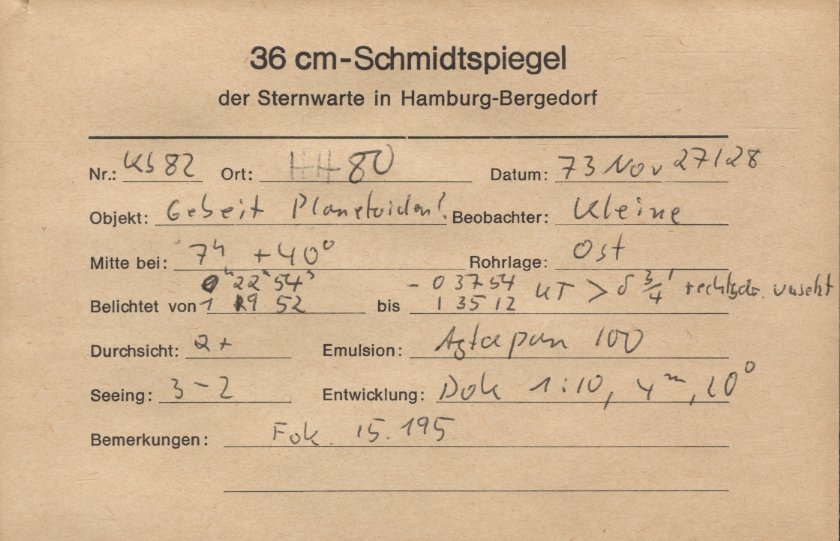 36 cm-Schmidtspiegel
der Sternwarte in Hamburg-Bergedorf
Nr.: Kb 82 Ort: HH 80 Datum: 73 Nov 27/28
Objekt: Gebeit Planetoiden! Beobachter: Kleine
Mitte bei: 7h +40° Rohrlage: Ost
0h 22m 54s - 0 37 54
Belichtet von 1 19 52 bis 1 35 12 UT > δ 3/4'
Durchsicht: 2+ Emulsion: Agfapan 100
Seeing: 3-2 Entwicklung: Dok 1:10, 4m, 20°
Bemerkungen: Fok. 15.195